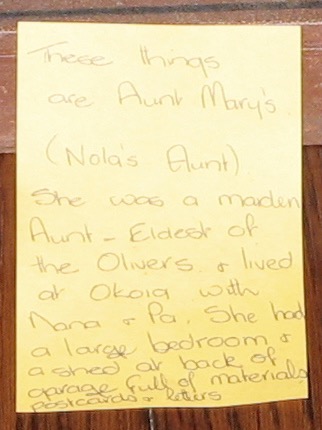 These things
are Aunt Mary's
(Nola's Aunt)
She was a maiden
Aunt - Eldest of
the Olivers & lived
at Okoia with
Nana & Pa. She had
a large bedroom &
a shed at back of
garage full of materials
postcards & letters